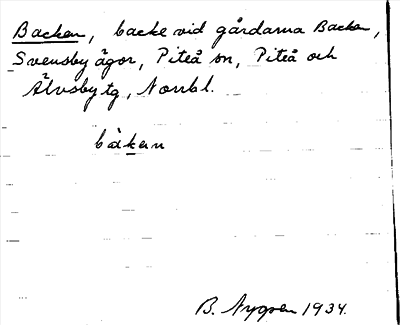 Backen, backe vid gårdarna Backen,
Svensby ägor, Piteå sn, Piteå och
Älvsby tg, Norrbl.
bàken
B. Nygren 1934.